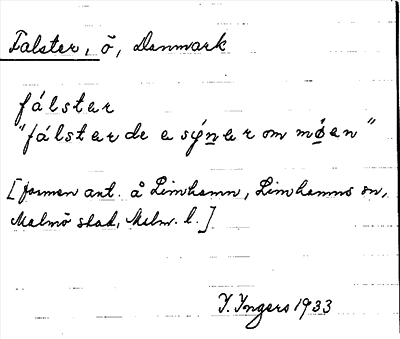 Falster, ö, Danmark
fálstar
"fálstar de e sýnar om møan"
[formen ant. å Limhamn, Limhamns sn,
Malmö stad, Malm. l.]
I. Ingers 1933